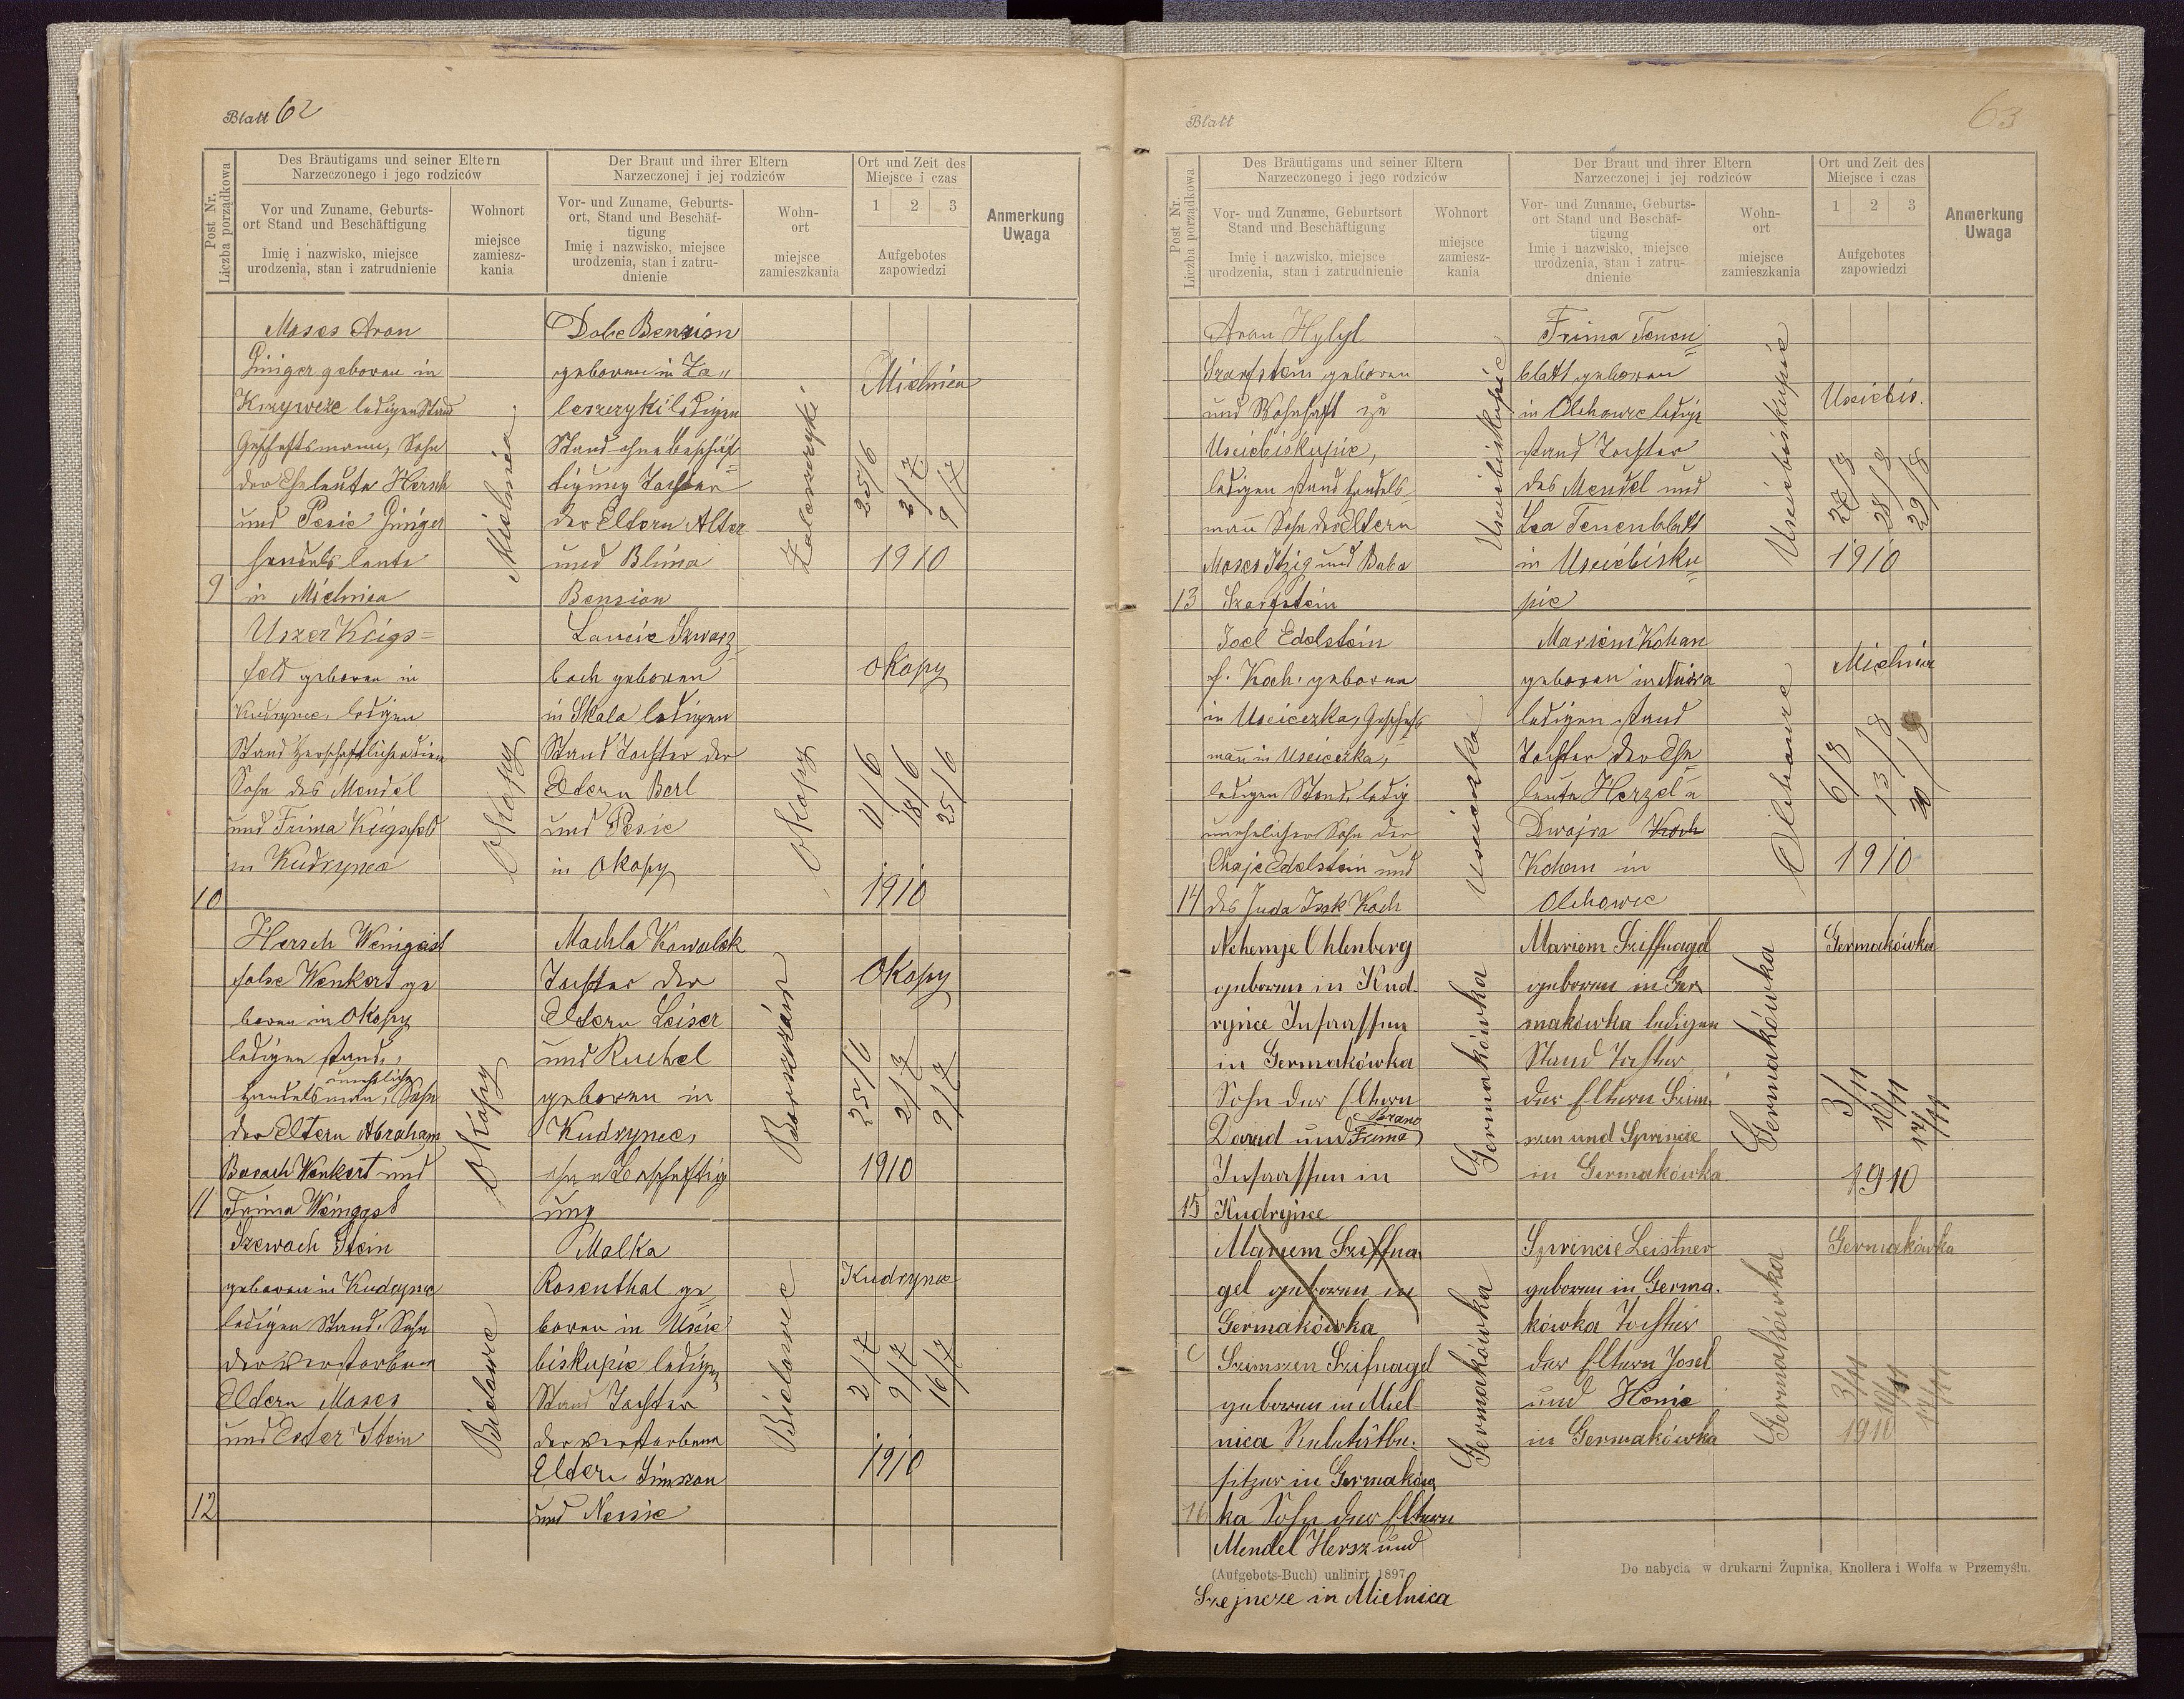 Blatt 62
Post Nr.
Liczba porządkowa
Des Bräutigams und seiner Eltern
Narzeczonego i jego rodziców
Der Braut und ihrer Eltern
Narzeczonej i jej rodziców
Ort und Zeit des
Miejsce i czas
Anmerkung
Uwaga
Vor und Zuname, Geburts-
ort Stand und Beschäftigung
Imię i nazwisko, miejsce
urodzenia, stan i zatrudnienie
Wohnort
miejsce
zamiesz-
kania
Vor- und Zuname, Geburts-
ort, Stand und Beschäf-
tigung
Imię i nazwisko, miejsce
urodzenia, stan i zatru-
dnienie
Wohn-
ort
miejsce
zamieszkania
1 2 3
Aufgebotes
zapowiedzi
9
Moses Aron
Giniger geboren in
Krzywcze ledigen Stand
Geschäftsmann, Sohn
der Eheleute Hersch
und Pesie Giniger
handelsleute
in Mielnica
Mielnica
Dobe Benzion
geboren in Za„
leszczyki ledigen
Stand ohne beschäf
tigung Tochter
der Eltern Alter
und Blima
Bension
Zaleszczyki
Mielnica
25/6 2/7 9/7
1910
10
Uszer Keigs=
feld geboren in
Kudrynce, ledigen
Stand
Sohn des Mendel
und Frima Keigsfeld
in Kudrynce
Okopy
Lancie Szwarz
bach geboren
in Skala ledigen
Stand Tochter der
Eltern Berl
und Pesie
in Okopy
Okopy
Okopy
11/6 18/6 25/6
1910
11
Hersch Weingast
false Wenkert ge
boren in Okopy
ledigen stand,
unehelicher
Handelsman, Sohn
der Eltern Abraham
Barach Wenkert und
Frima Weingast
Okopy
Machla Kowalek
Tochter der
Eltern Leiser
und Ruchel
geboren in
Kudrynce,
ohne beschäftig
ung
Borszczów
Okopy
25/6 2/7 9/7
1910
12
Szewach Stein
geboren in Kudrynce
ledigen Stand, Sohn
der verstorbenen
Eltern Moses
und Ester Stein
Bielowce
Malka
Rosenthal ge
boren in Uście
biskupie ledigen
Stand Tochter
der verstorbenen
Eltern Simson
und Nessie
Bielowce
Kudrynce
2/7 9/7 16/7
1910
Blatt 63
Post Nr.
Liczba porządkowa
Des Bräutigams und seiner Eltern
Narzeczonego i jego rodziców
Der Braut und ihrer Eltern
Narzeczonej i jej rodziców
Ort und Zeit des
Miejsce i czas
Anmerkung
Uwaga
Vor- und Zuname, Geburtsort
Stand und Beschäftigung
Imię i nazwisko, miejsce
urodzenia, stan i zatrudnienie
Wohnort
miejsce
zamiesz-
kania
Vor- und Zuname, Geburts-
ort Stand und Beschäf-
tigung
Imię i nazwisko, miejsce
urodzenia, stan i zatru-
dnienie
Wohn-
ort
miejsce
zamieszkania
1 2 3
Aufgebotes
zapowiedzi
13
Aron
Szarfstein geboren
und Wohnhaft zu
Usciebiskupie,
ledigen stand handels-
man Sohn der Eltern
Moses Itzig und Baba
Szarfstein
Usciebiskupie
Frima Tenen
blatt geboren
in Olchowce ledige
stand Tochter
des Mendel und
Lea Tenenblatt
in Usciebisku
pie
Usciebiskupie
Usciebis.
1910
14
Joel Edelstein
f. Koch. geboren
in Usciczka, Geschäfts
man in Usciczka,
ledigen Stand, ledig
unehelicher Sohn der
Chaje Edelstein und
des Juda Isak Koch
Usciczka
Mariem Kohan
geboren in Niwra
ledigen stand
Tochter der Ehe
leute Herzel u
Dwojra Koch
Kohan in
Olchowce
Olchowce
Mielnica
6/8 13/8 20/8
1910
15
Nehemje Ohlenberg
geboren in Kud.
rynce Insassen
in Germakówka
Sohn der Eltern
Brane
David und Frima
Insassen in
Kudrynce
Germakówka
Mariem Sziffnagel
geboren in Ger
makówka ledigen
Stand Tochter
der Eltern Szim.
szen und Sprincie
in Germakówka
Germakówka
Germakówka
3/11 10/11 17/11
1910
16
Mariem Sziffna
gel geboren in
Germakówka
Szimszen Szifnagel
geboren in Miel
nica Realitätbe.
sitzer in Germakow
ka Sohn der Eltern
Mendel Hersz und
Szejncze in Mielnica
Germakówka
Sprincie Leistner
geboren in Germa.
kówka Tochter
der Eltern Josel
und Henie
in Germakówka
Germakówka
Germakówka
3/11 10/11 17/11
1910
(Aufgebots-Buch) unlinirt 1897.
Do nabycia w drukarni Żupnika, Knollera i Wolfa w Przemyślu.